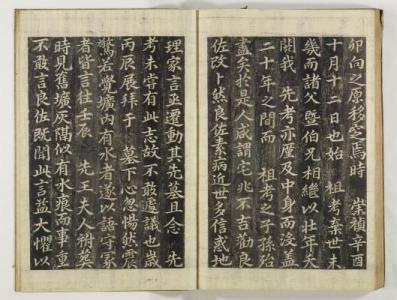 卯向之原移窆焉時 崇禎辛酉
十月十二日也始 祖考棄世未
幾而諸父曁伯兄相繼以壯年夭
閼我 先考亦歷及中身而沒蓋
二十年之間而 祖考之子孫殆
盡矣於是人咸謂宅兆不吉勸良
佐改卜然良佐素病近世多信惑地
理家言亟遷動其先墓且念 先
考未嘗有此志故不敢遽議也歲
丙辰展拜于 墓下心忽惕然震
驚若覺壙內有水者遂以語守冢
者皆言往壬辰 先王夫人祔葬
時見舊壙灰隔似有水痕而事重
不敢言良佐旣聞此言益大懼以